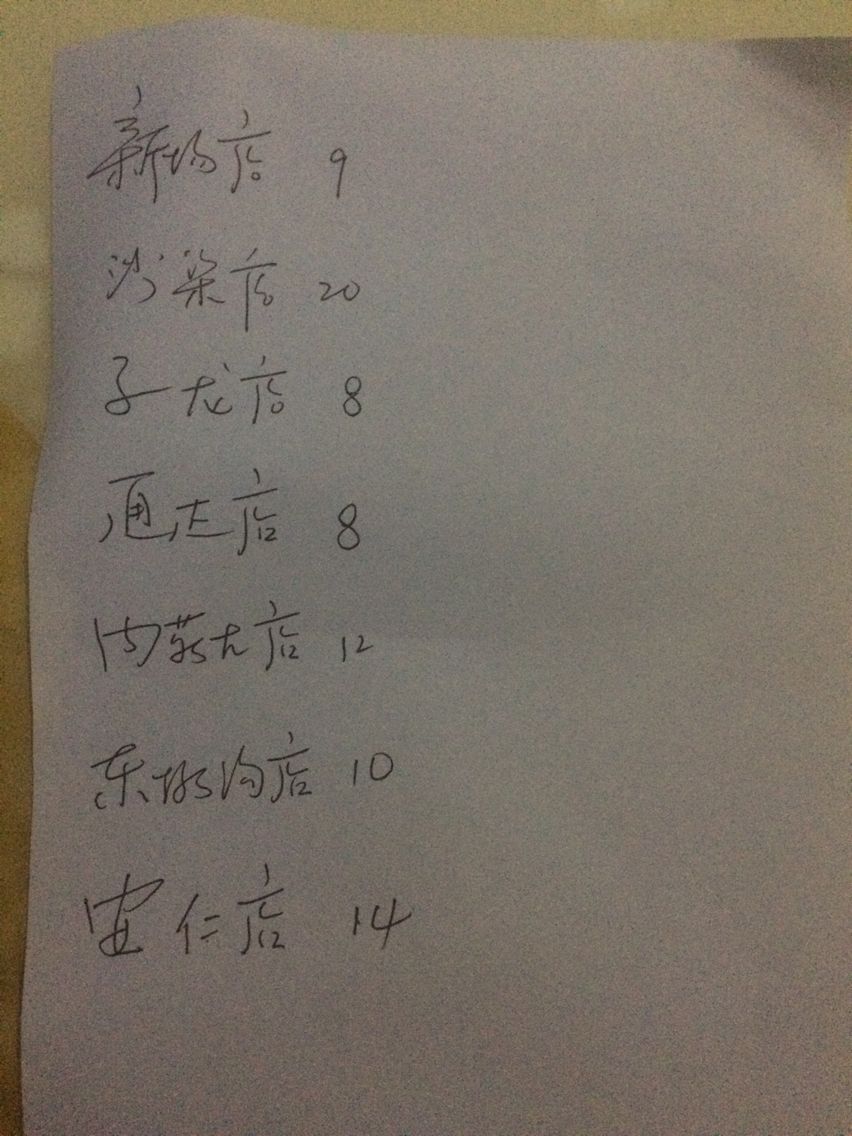 新场店 9
沙渠店 20
子龙店 8
通达店 8
内蒙大店 12
东壕沟店 10
安仁店 14